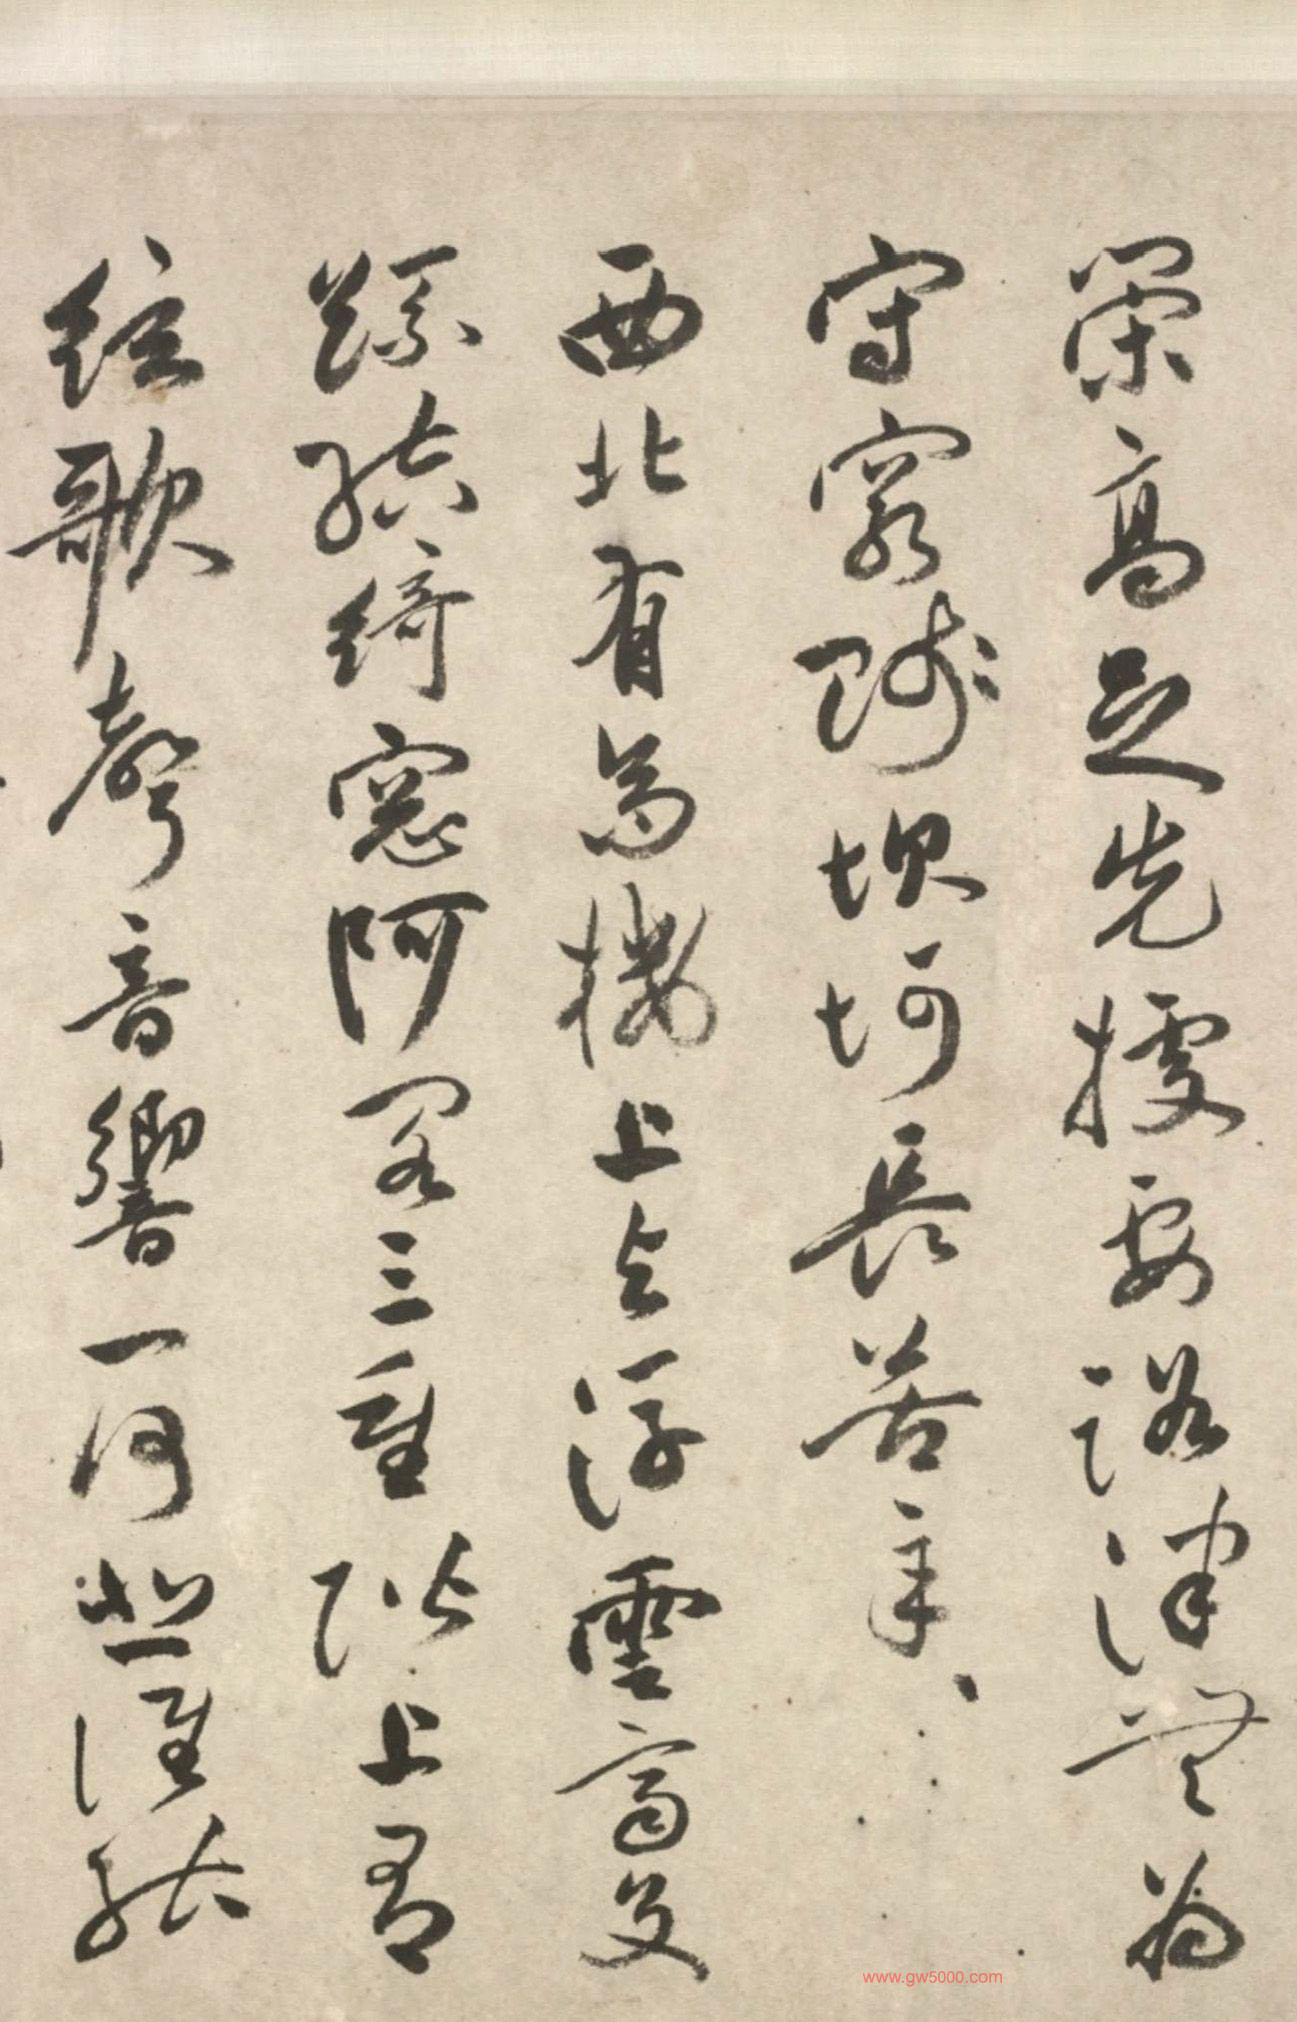 策高足先據要路津無為
守窮賤坎坷長苦辛
西北有高樓上与浮雲齊交
疏結綺窻阿閣三重階上有
絃歌聲音響一何悲誰能
www.gw5000.com